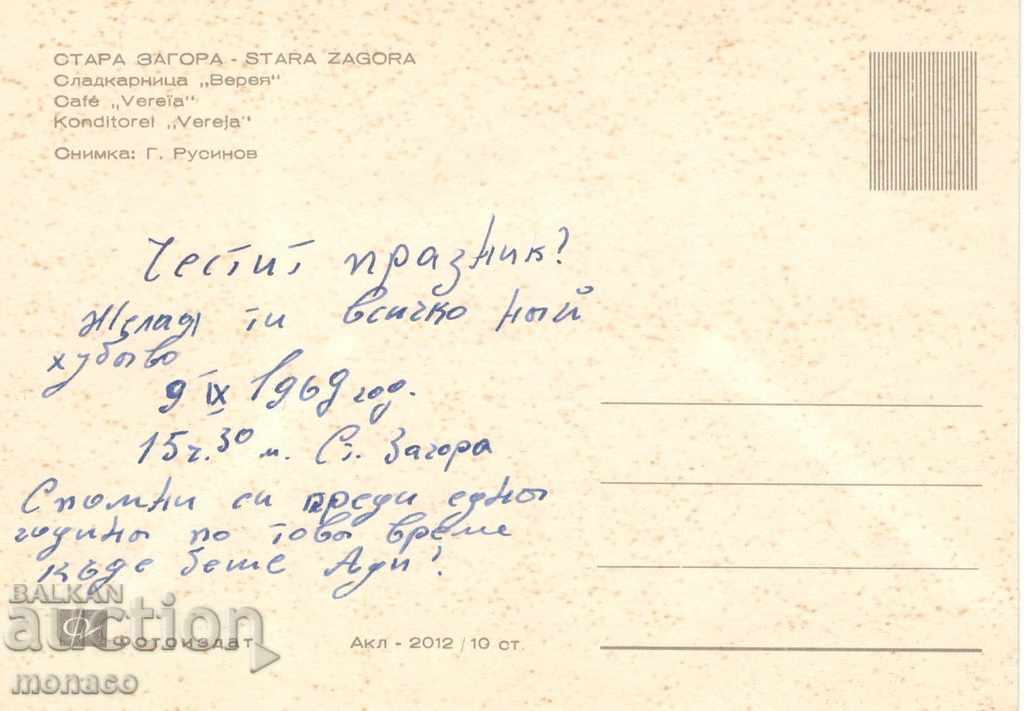 СТАРА ЗАГОРА - STARA ZAGORA
Сладкарница „Верея“
Café „Vereïa“
Konditorei „Vereja“
Снимка: Г. Русинов
Честит празник?
Желая ти всичко ный
хубыво
9 IX 1969 год.
15 ч. 30 м. Ст. Загора
Спомни си преди едны
годины по товы време
къде беше Ади!
BALKAN
auction
Фотоиздат
Акл - 2012 / 10 ст.
monaco